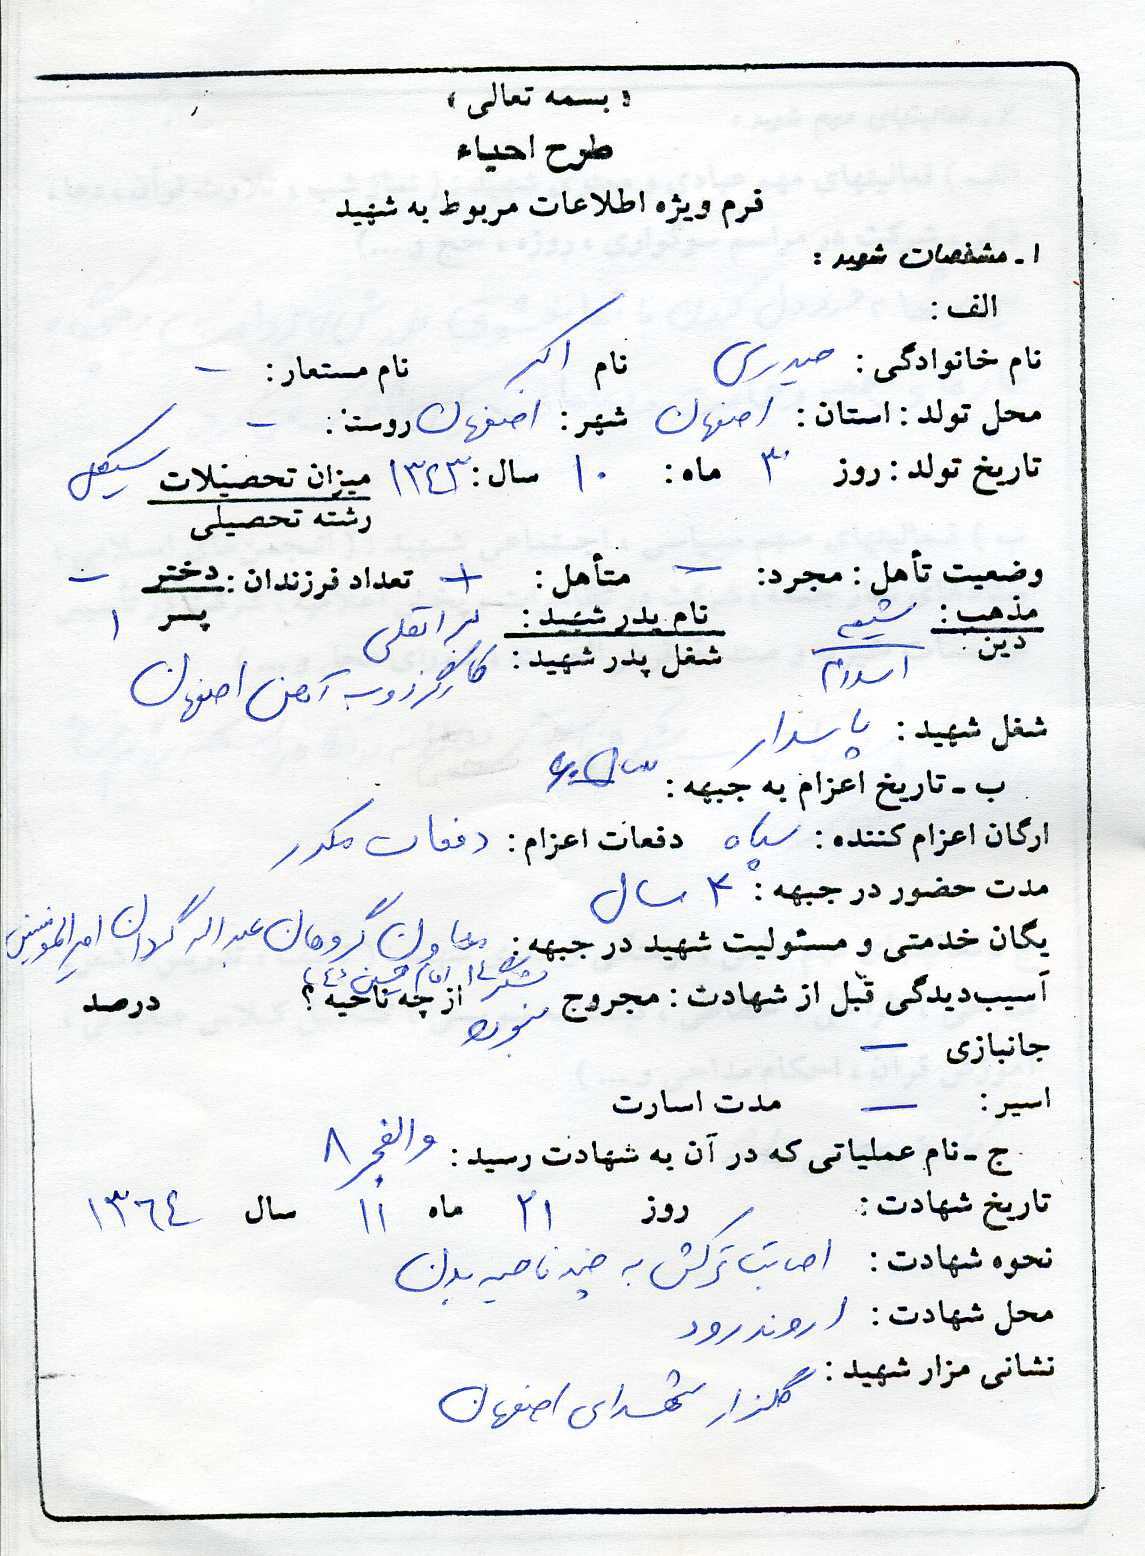 « بسمه تعالی »
طرح احیاء
فرم ویژه اطلاعات مربوط به شهید
۱ـ مشخصات شهید :
الف :
نام خانوادگی : حیدری نام اکبر نام مستعار : –
محل تولد : استان : اصفهان شهر : اصفهان روستا : –
تاریخ تولد : روز ۳۰ ماه : ۱۰ سال : ۱۳۴۳ میزان تحصیلات سیکل
رشته تحصیلی
وضعیت تأهل : مجرد : – متأهل : + تعداد فرزندان : دختر –
مذهب : شیعه نام پدر شهید : براتعلی پسر ۱
دین اسلام شغل پدر شهید : کارگر ذوب آهن اصفهان
شغل شهید : پاسدار
ب ـ تاریخ اعزام به جبهه : سال ۶۰
ارگان اعزام کننده : سپاه دفعات اعزام : دفعات مکرر
مدت حضور در جبهه : ۴ سال
یگان خدمتی و مسئولیت شهید در جبهه : معاون گروهان عبداله گردان امیرالمومنین
لشکر ۱۴ امام حسین (ع)
آسیب‌دیدگی قبل از شهادت : مجروح نبوده از چه ناحیه ؟ درصد
جانبازی –
اسیر : – مدت اسارت
ج ـ نام عملیاتی که در آن به شهادت رسید : والفجر ۸
تاریخ شهادت : روز ۲۱ ماه ۱۱ سال ۱۳۶۴
نحوه شهادت : اصابت ترکش به چند ناحیه بدن
محل شهادت : اروندرود
نشانی مزار شهید : گلزار شهدای اصفهان